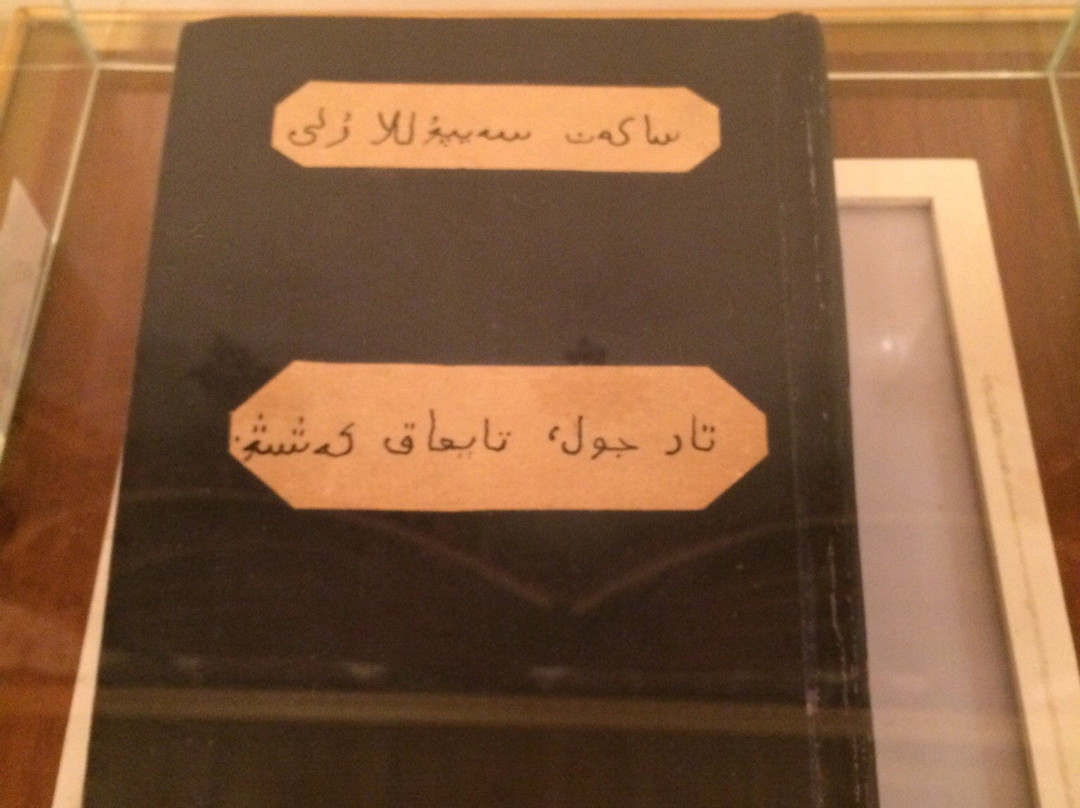 ساكەن سەيپۇللا ۇلى
تار جول، تايعاق كەشۋ